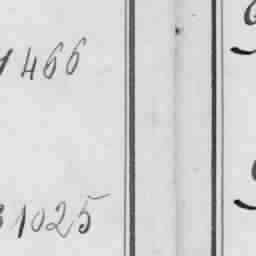 1466
31025